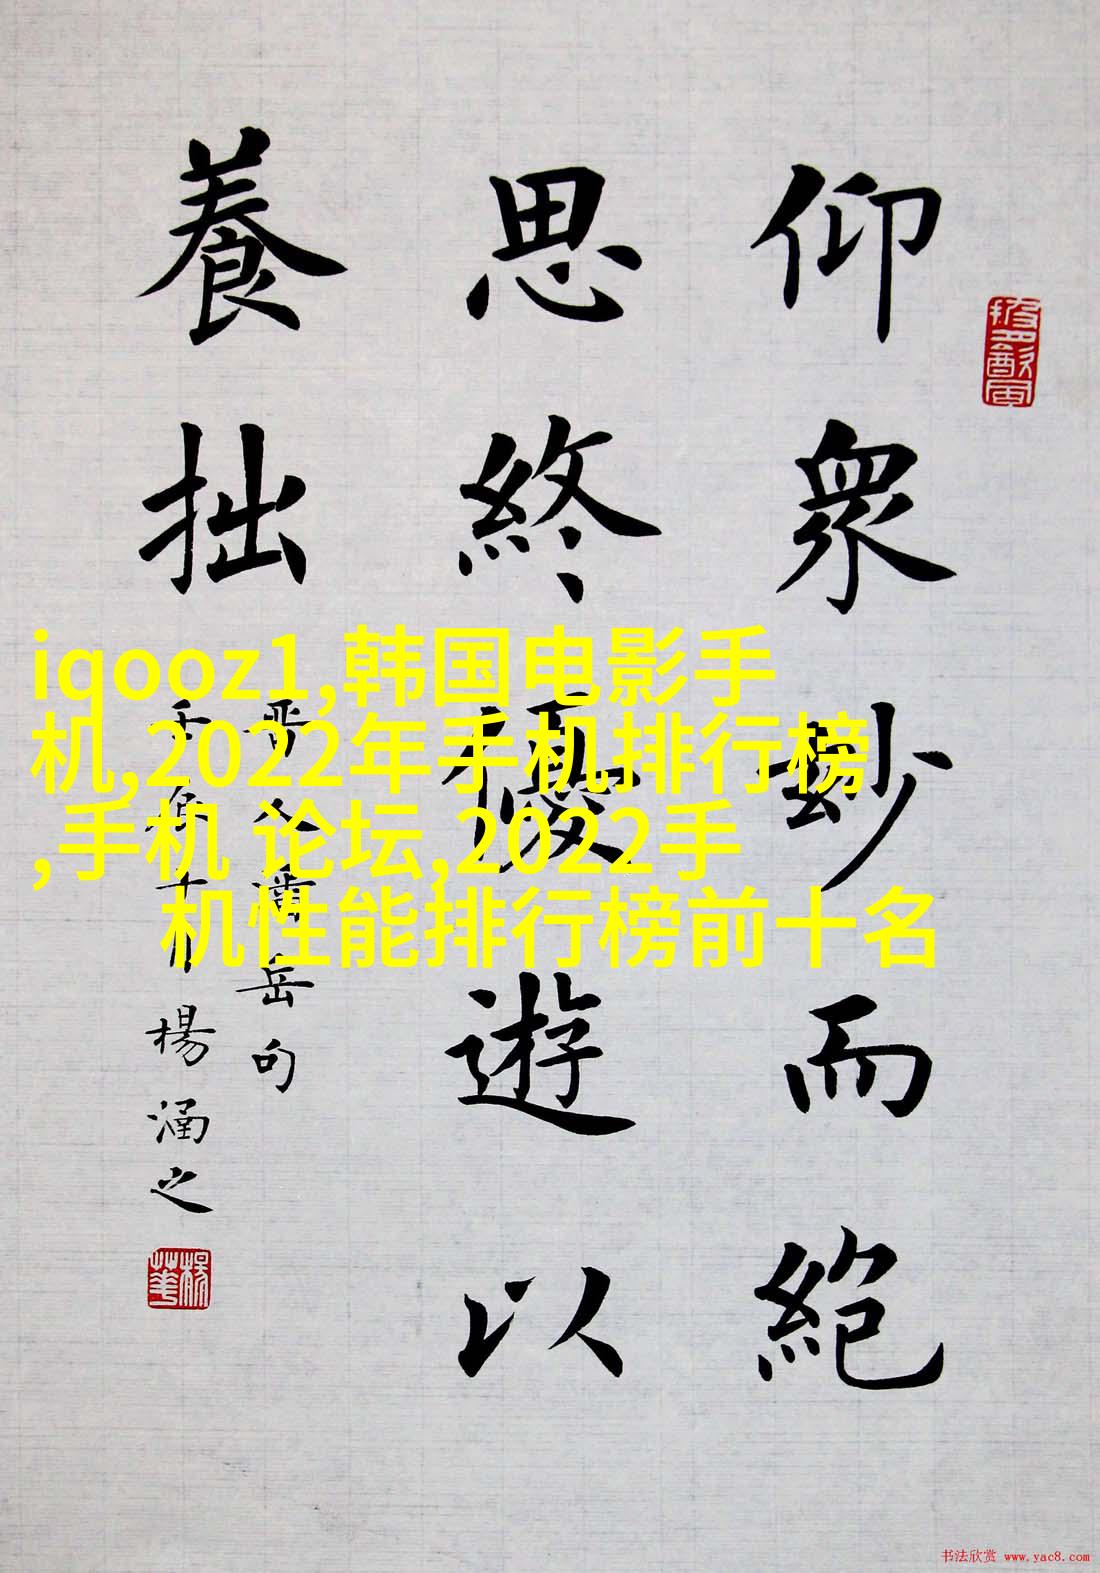 仰眾玅而絶
思終優遊以
養拙
晋人潘岳句
楊涵之
iqooz1,韩国电影手
机,2022年手机排行榜
,手机 论坛,2022手
机性能排行榜前十名
书法欣赏 www.yac8.com